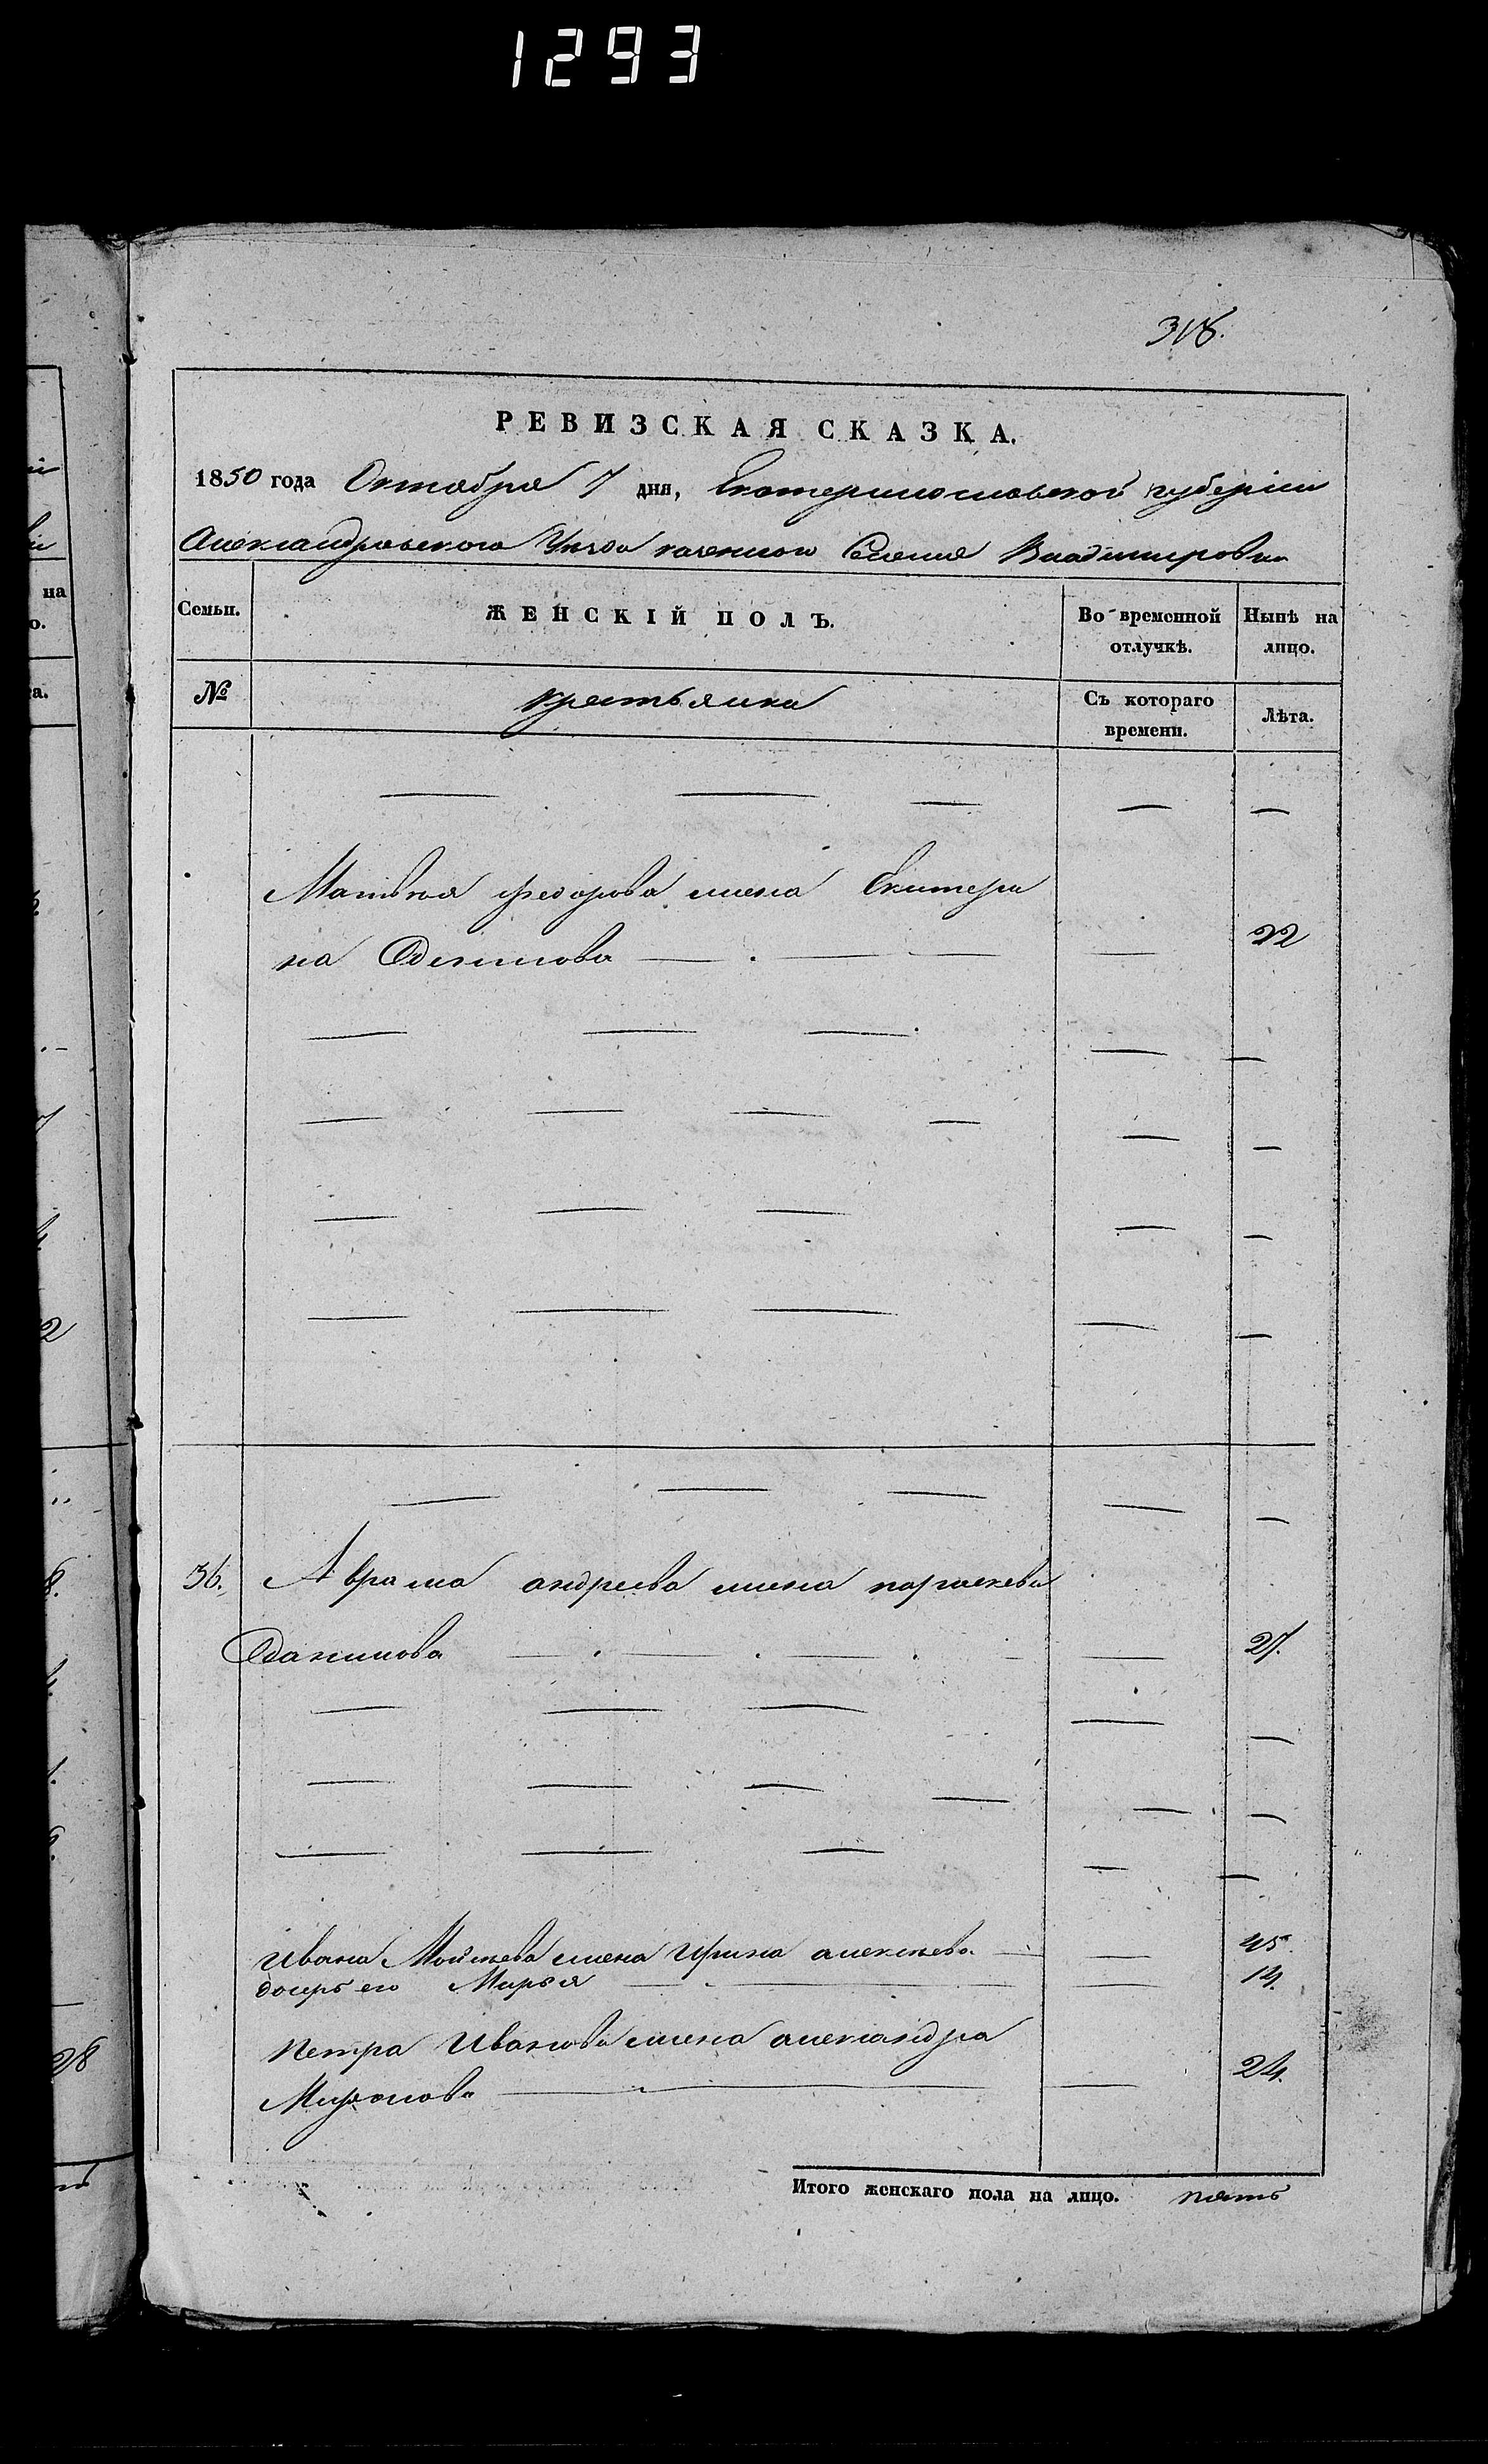 1293
318.
РЕВИЗСКАЯ СКАЗКА.
1850 года Октября 7 дня, Екатеринославской губерніи
Александровского Уѣзда казенного Селения Владимировки
на
Семьи.
ЖЕНСКІЙ ПОЛЪ.
Во временной отлучкѣ.
Нынѣ на лицо.
№
крестьянки
Съ котораго времени.
Лѣта.
Матвея Федорова жена Екатери
на Денисова — — — 22
36. Аврама андреева жена параскева
Данилова — — — 27.
Ивана Мойсеева жена Ирина алексеева — — 45.
дочерь его Марья — — 14.
петра Иванова жена александра
Миронова — — 24.
28
Итого женскаго пола на лицо. пять